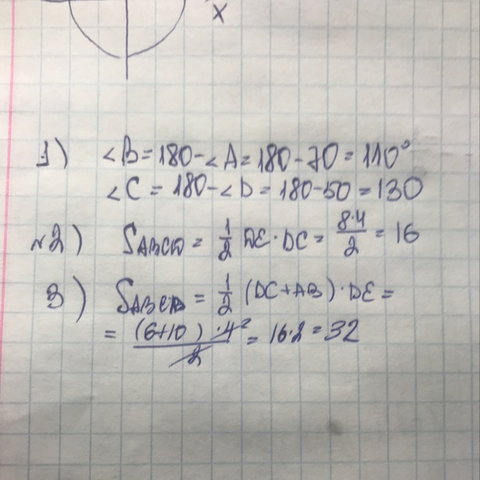 x
1) ∠B = 180 - ∠A = 180 - 70 = 110°
∠C = 180 - ∠D = 180 - 50 = 130
№2) SABCD = 1/2 DE · DC = 8·4/2 = 16
3) SABCD = 1/2 (DC + AB) · DE =
= (6+10) · 4²/2 = 16·2 = 32